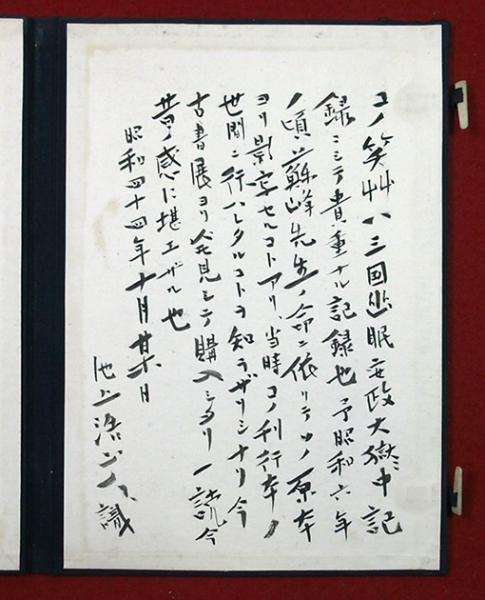 コノ笑艸ハ三国幽眠安政大獄中記
録ニシテ貴重ナル記録也予昭和六年
ノ頃蘇峰先生ノ命ニ依リテソノ原本
ヨリ影写セルコトアリ、当時コノ刊行本ノ
世間ニ行ハレタルコトヲ知ラザリシナリ今
古書展ヨリ発見シテ購入シタリ一読今
昔ノ感ニ堪エザル也
昭和四十四年十月廿日
池上浩 識